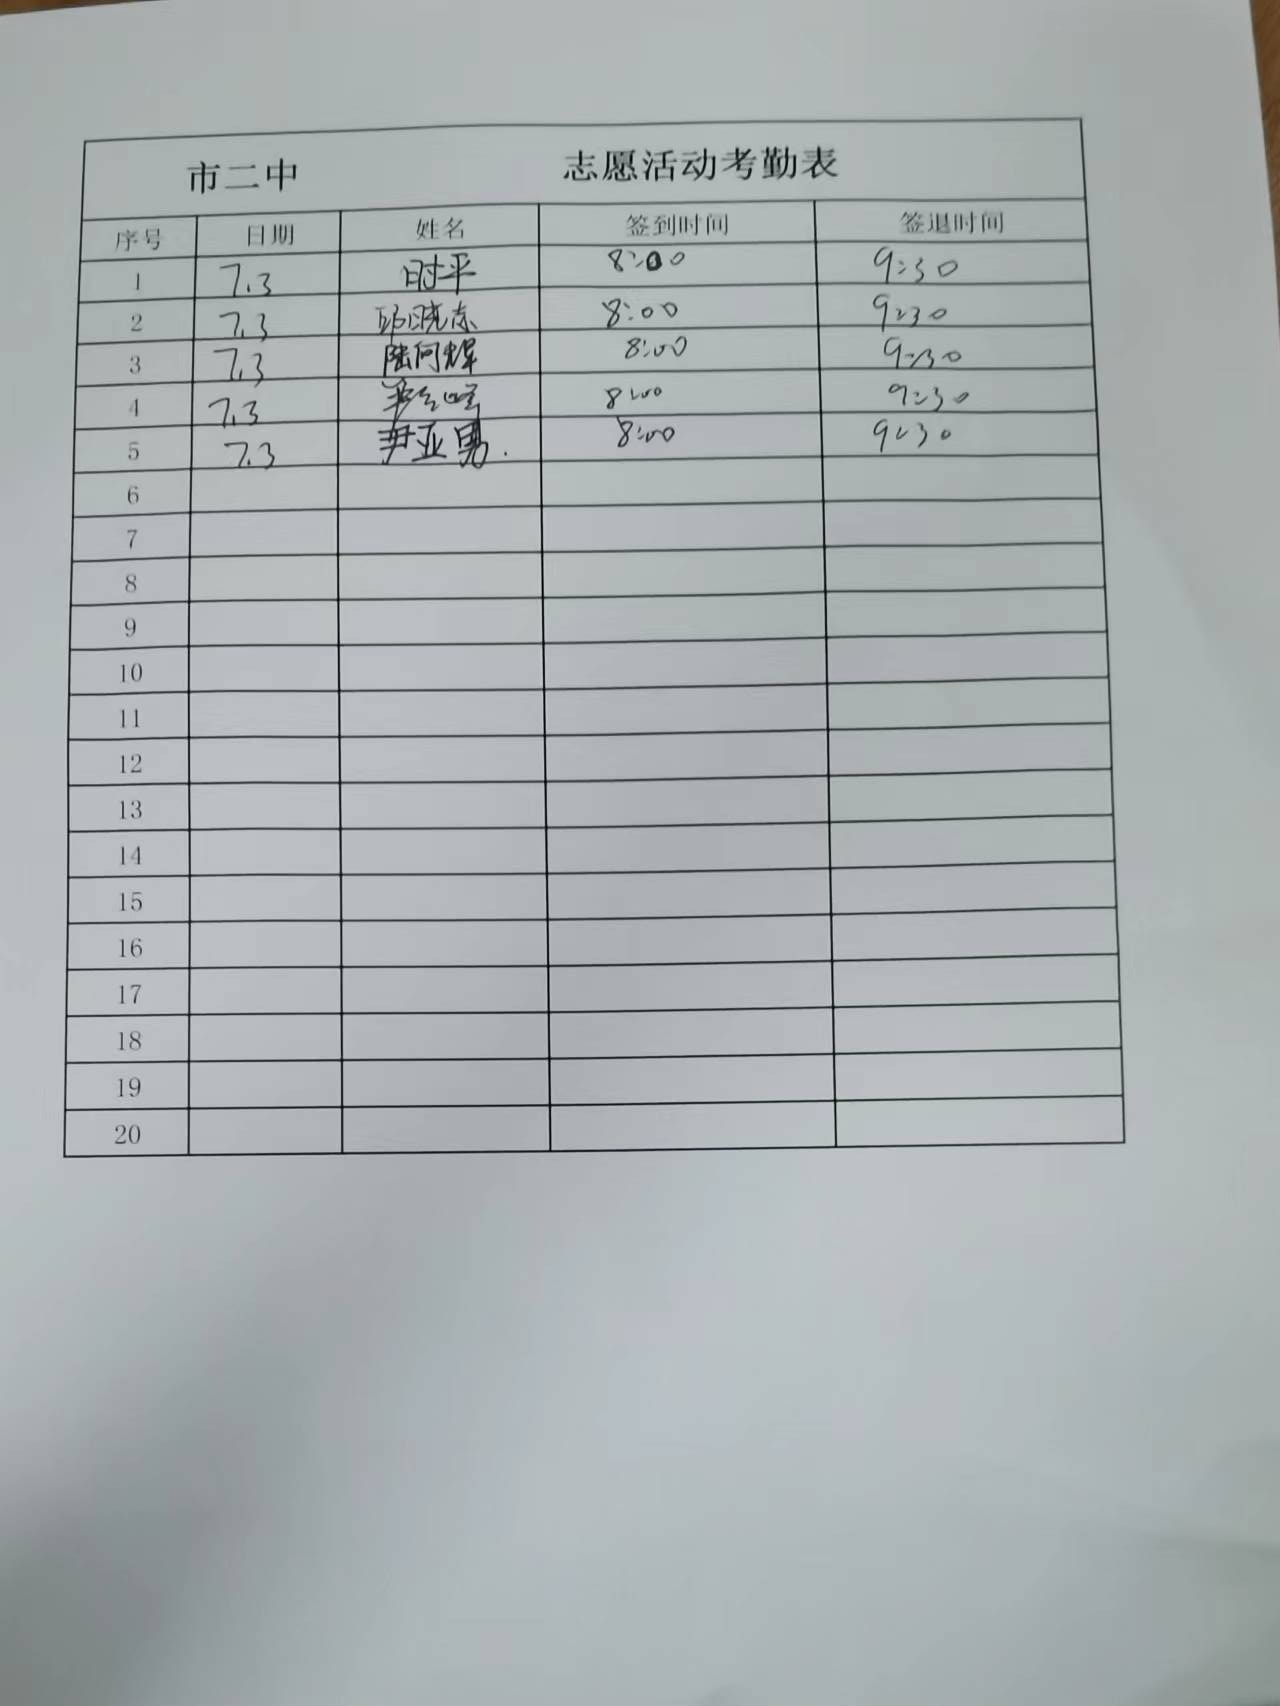 市二中 志愿活动考勤表
序号 日期 姓名 签到时间 签退时间
1 7.3 时平 8:00 9:30
2 7.3 邱晓东 8:00 9:30
3 7.3 陆何辉 8:00 9:30
4 7.3 8:00 9:30
5 7.3 尹亚男. 8:00 9:30
6
7
8
9
10
11
12
13
14
15
16
17
18
19
20